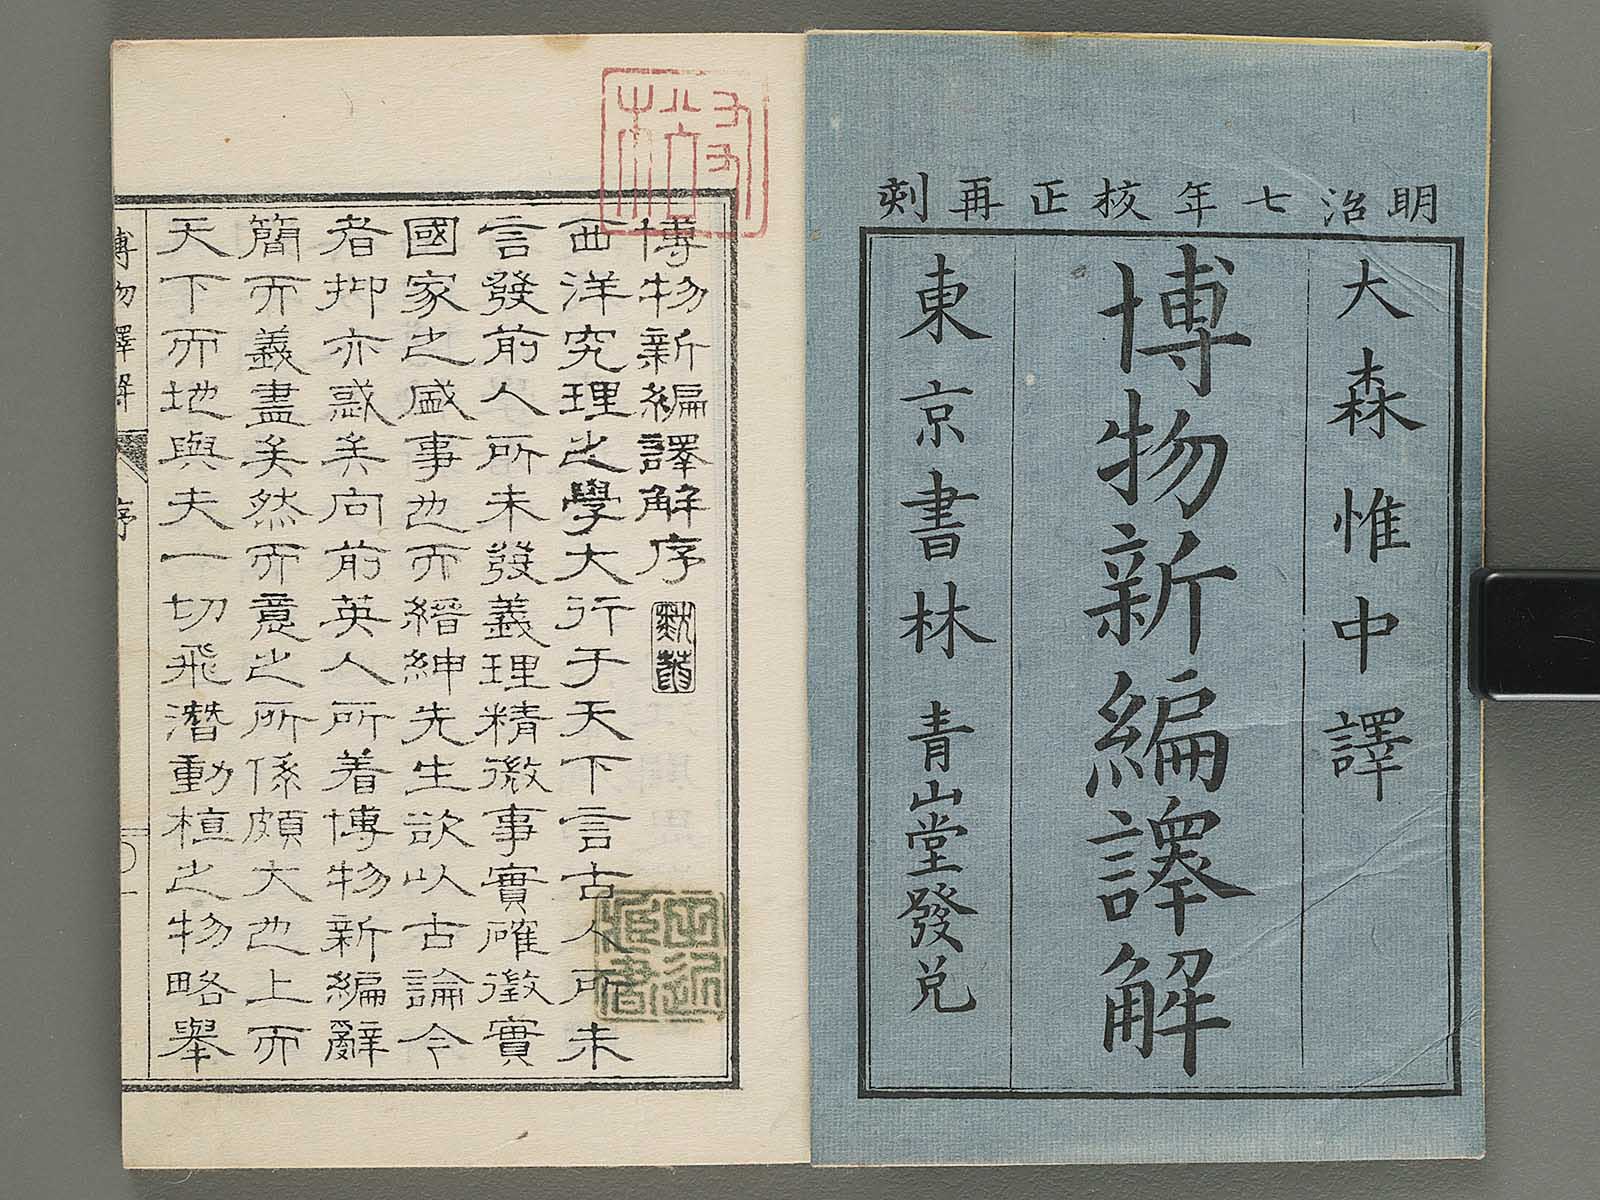 明治七年核正再刻
大森惟中譯
博物新編譯解
東京書林 青山堂發兌
博物新編譯解序
西洋究理之學大行于天下言古人所未
言發前人所未發義理精微事實確徵實
國家之盛事也而縉紳先生欲以古論今
者抑亦惑矣向前英人所着博物新編辭
簡而義盡矣然而意之所係頗大也上而
天下而地與夫一切飛潛動植之物略舉
博物譯解 序